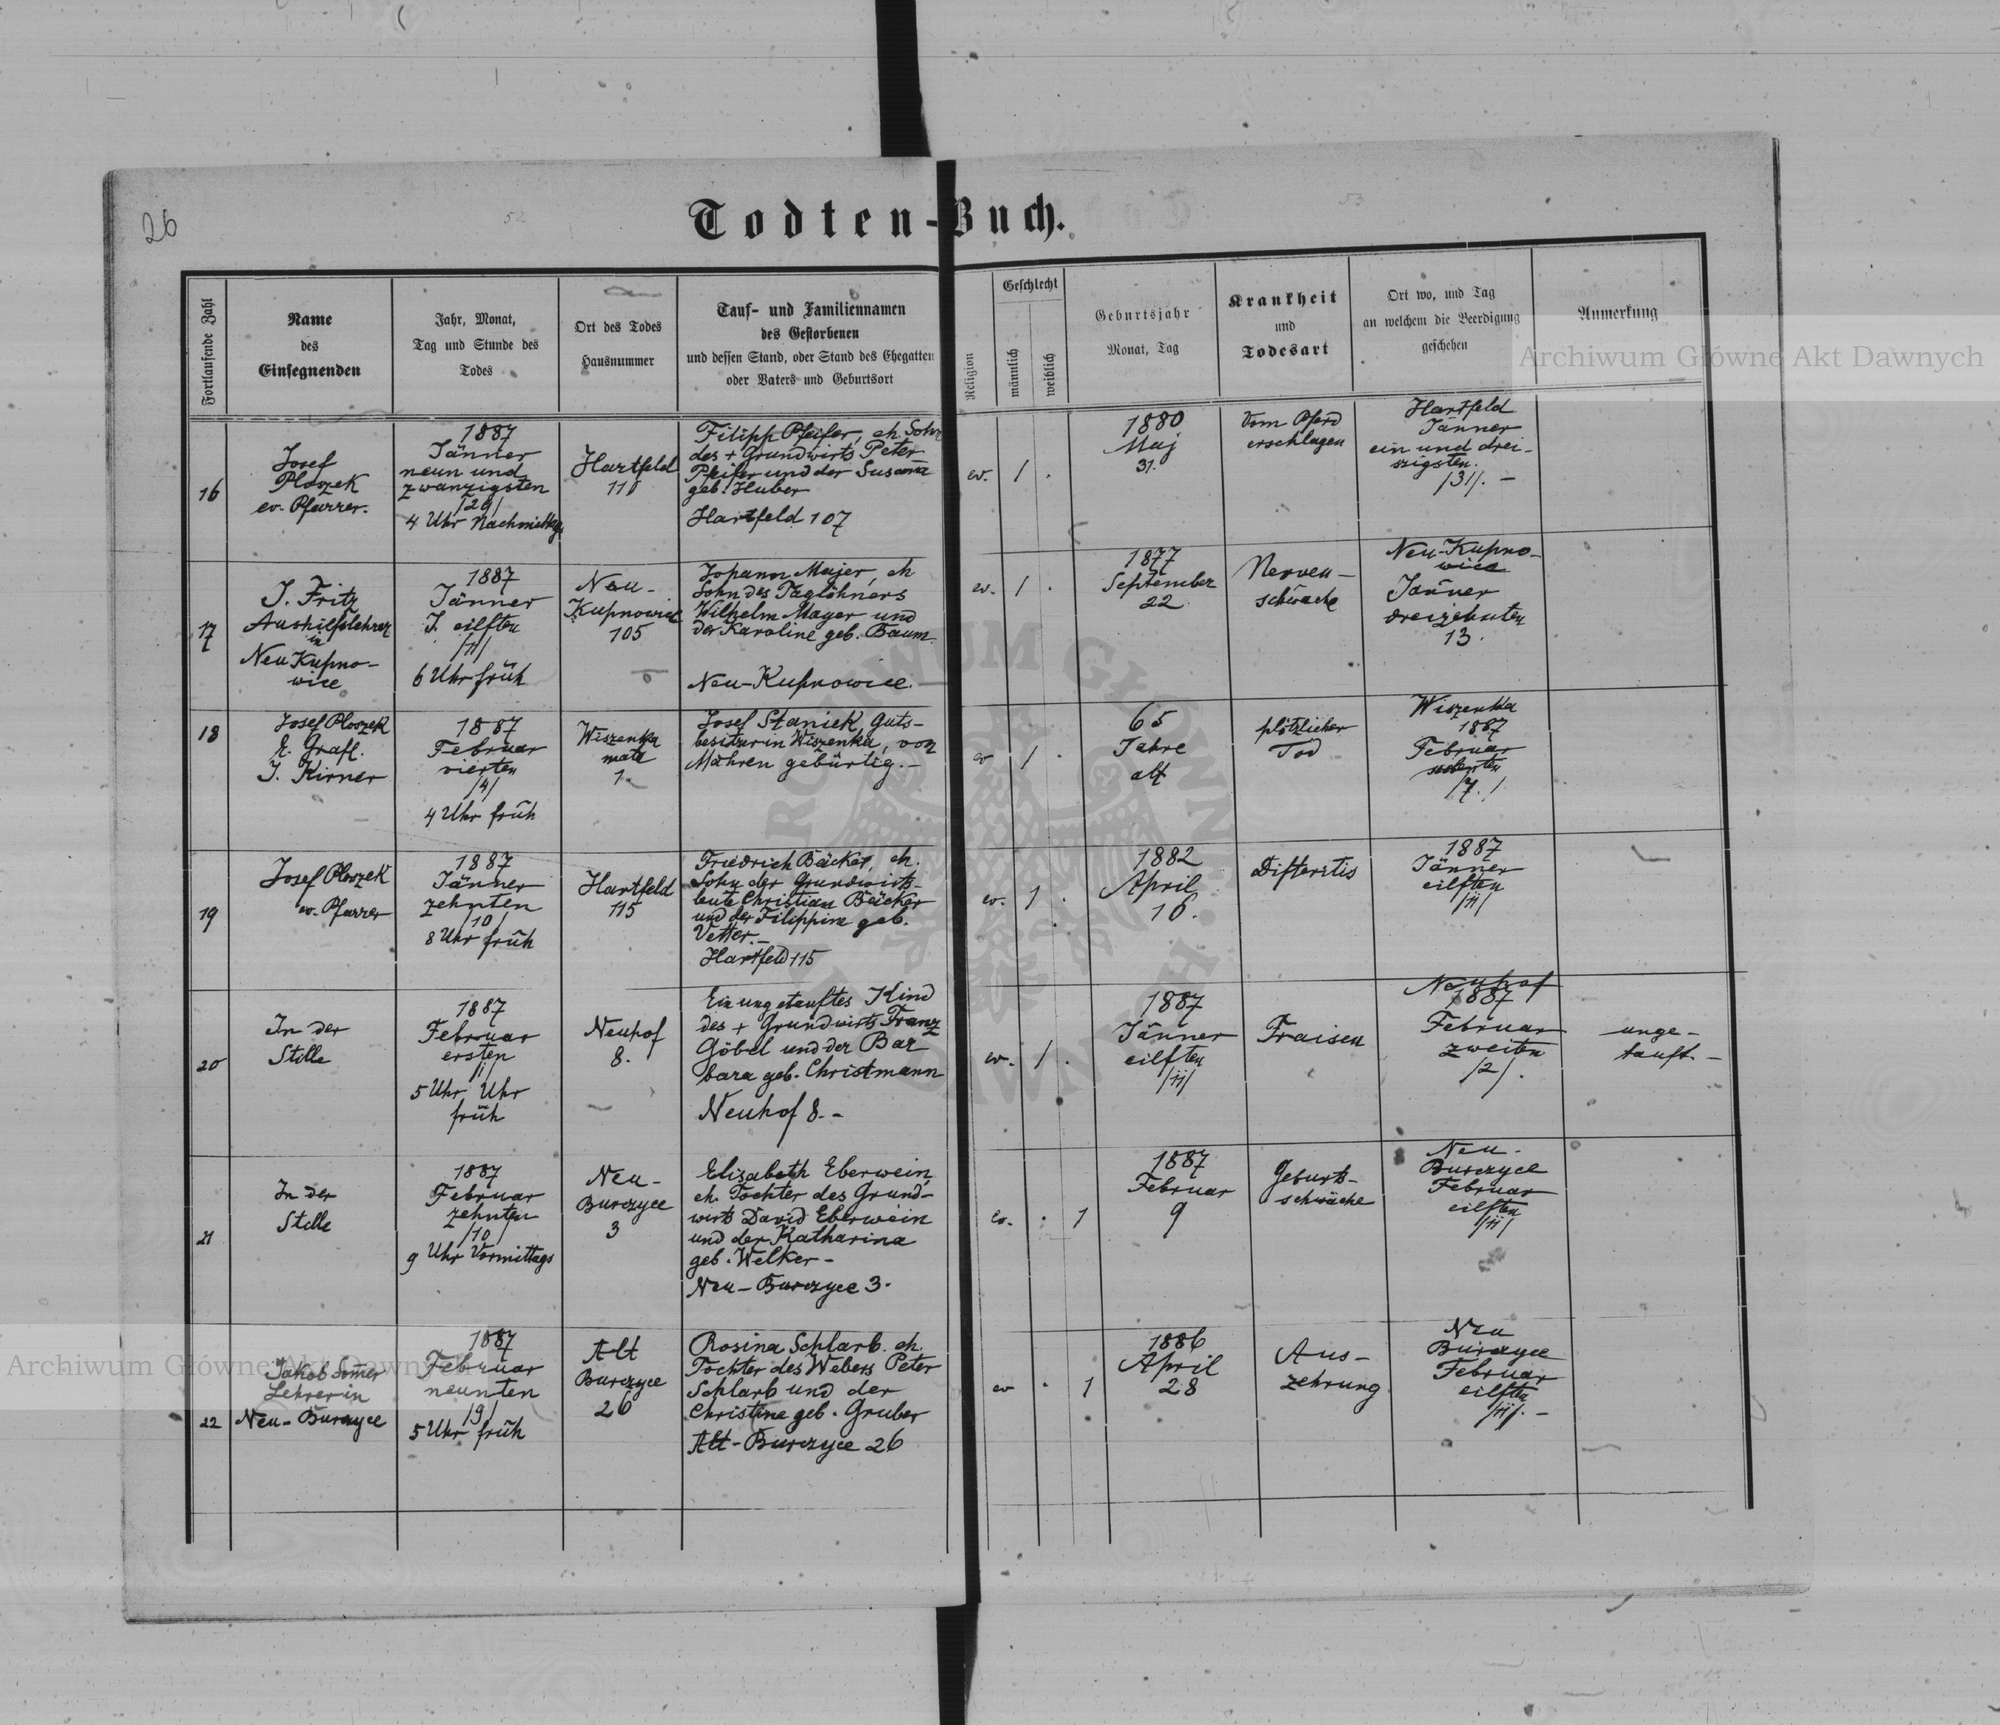 26
52
53
Todten-Buch.
Fortlaufende Zahl
Name
des
Einsegnenden
Jahr, Monat,
Tag und Stunde des
Todes
Ort des Todes
Hausnummer
Tauf- und Familiennamen
des Gestorbenen
und dessen Stand, oder Stand des Ehegatten
oder Vaters und Geburtsort
Religion
Geschlecht
männlich
weiblich
Geburtsjahr
Monat, Tag
Krankheit
und
Todesart
Ort wo, und Tag
an welchem die Beerdigung
geschehen
Anmerkung
Archiwum Główne Akt Dawnych
16
Josef
Ploszek
ev. Pfarrer.
1887
Jänner
neun und
zwanzigsten
/29/
4 Uhr Nachmittag
Hartfeld
Filipp Pfeifer, eh. Sohn
des + Grundwirts Peter
Pfeifer und der Susanna
geb. Huber
Hartfeld 107
ev. 1 .
1880
Maj
31.
Vom Pferd
erschlagen
Hartfeld
Jänner
ein und drei-
szigsten.
/31/. -
17
J. Fritz
Aushilfslehrer
in
Neu Kupno-
wice
1887
Jänner
J. eilften
/11/
6 Uhr früh
Neu-
Kupnowice
105
Johann Majer, eh
Sohn des Taglöhners
Wilhelm Mayer und
der Karoline geb. Baum.
Neu-Kupnowice.
ev. 1 .
1877
September
22.
Nerven-
schwäche
Neu-Kupno-
wice
Jänner
dreizehnten
13.
18
Josef Ploszek
E. Grafl.
J. Kirner
1887
Februar
vierten
/4/
4 Uhr früh
Wiszenka
mała
1.
Josef Staniek Guts-
besitzer in Wiszenka, von
Mähren gebürtig. -
ev 1 .
65
Jahre
alt
plötzlicher
Tod
Wiszenka
1887
Februar
siebenten
/7./
19
Josef Ploszek
ev. Pfarrer
1887
Jänner
zehnten
/10/
8 Uhr früh
Hartfeld
115
Friedrich Bäcker, eh.
Sohn der Grundwirts-
leute Christian Bäcker
und der Filippine geb.
Vetter. -
Hartfeld 115
ev. 1 .
1882
April
16.
Difteritis
1887
Jänner
eilften
/11/
20
In der
Stille
1887
Februar
ersten
/1/
5 Uhr Uhr
früh
Neuhof
8.
Ein ungetauftes Kind
des + Grundwirts Franz
Göbel und der Bar
bara geb. Christmann
Neuhof 8. -
ev. 1 .
1887
Jänner
eilften
/11/
Fraisen
Neuhof
1887
Februar
zweiten
/2/.
unge-
tauft. -
21
In der
Stille
1887
Februar
zehnten
/10/
9 Uhr Vormittags
Neu-
Burczyce
3
Elisabeth Eberwein,
eh. Tochter des Grund-
wirts David Eberwein
und der Katharina
geb. Welker -
Neu-Burczyce 3.
ev. . 1
1887
Februar
9
Geburts-
schwäche
Neu-
Burczyce
Februar
eilften
/11/
22
Jakob Somer
Lehrer in
Neu-Burczyce
1887
Februar
neunten
/9/
5 Uhr früh
Alt
Burczyce
26
Rosina Schlarb. eh.
Tochter des Webers Peter
Schlarb und der
Christine geb. Gruber
Alt-Burczyce 26
ev . 1
1886
April
28
Aus-
zehrung
Neu
Burczyce
Februar
eilften
/11/. -
Archiwum Główne Akt Dawnych